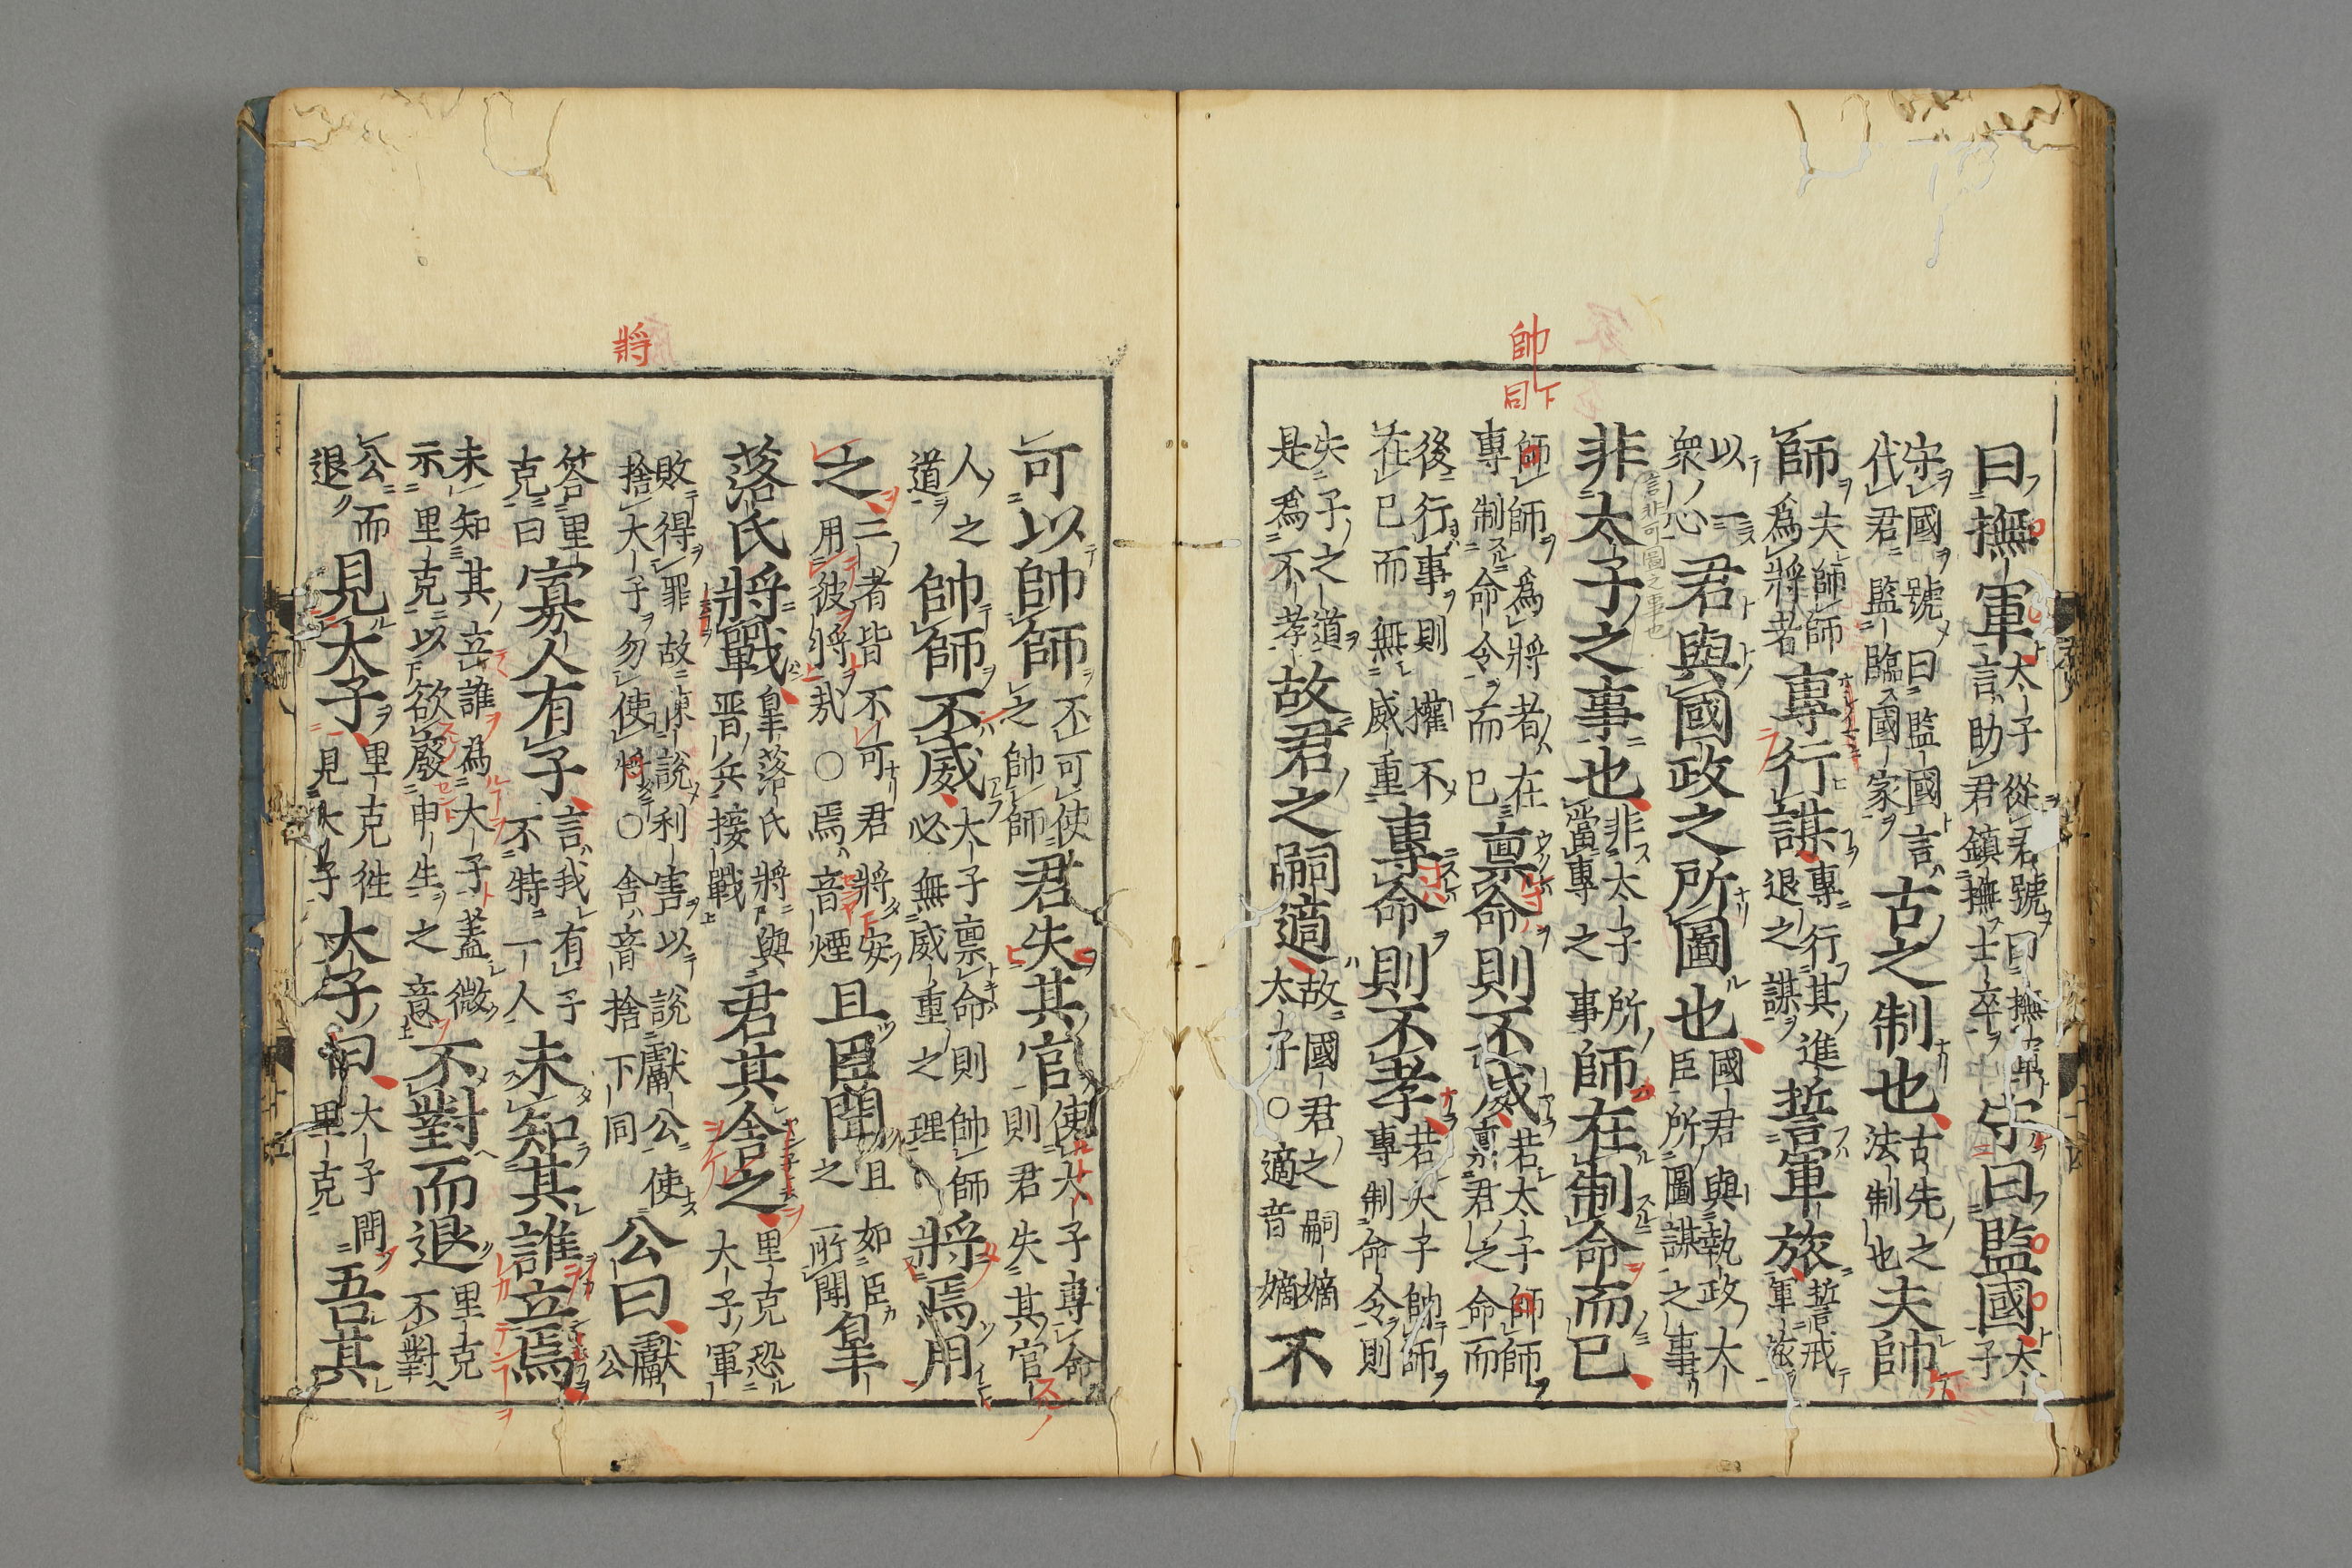 帥
下同
曰撫軍大子從君號曰撫軍言助君鎮撫士卒守曰監國大子
守國號曰監國言代君監臨國家古之制也古先之法制也夫帥
師夫師師為將者專行謀專行其進退之謀誓軍旅誓戒軍旅
以一衆心君與國政之所圖也國君與執政大臣所圖謀之事
非太子之事也非太子所當專之事師在制命而已
言非可圖之事也
師師為將者在專制命令而已稟命則不威若太子師師稟君之命而
後行事則權不在已而無威重專命則不孝若大子帥師專制命令則
失子之道是為不孝故君之嗣適故國君之嗣嫡太子○適音嫡不
將
可以帥師不可使之帥師君失其官使大子專命則君失其官
人之道帥師不威大子稟命則無威重必之理帥師將焉用
之二者皆不可君將安用彼將哉○焉音煙且臣聞之且如臣所聞皐
落氏將戰皐落氏將與晋兵接戰君其舍之里克恐大子軍
敗得罪故湅說利害以說獻公使捨大子勿使將○舍音捨下同公曰獻公
荅里克曰寡人有子言我有子不特一人未知其誰立焉
未知其立誰為大子蓋微示里克以欲廢申生之意不對而退里克不對
公而退見大子里克徃見大子大子曰大子問里克吾其